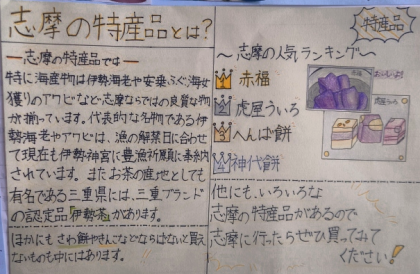 志摩の特産品とは?
ー志摩の特産品ですー
特に海産物は伊勢海老や安乗ふぐ、海女
獲りのアワビなど、志摩ならではの良質な物
が揃っています。代表的な名物である伊
勢海老やアワビは、漁の解禁日に合わせ
て現在も伊勢神宮に豊漁祈願に奉納
されています。またお茶の産地としても
有名である三重県には、三重ブランド
の認定品「伊勢茶」があります。
ほかにも、さわ餅やきんこなどならではないと買え
ないものも中にはあります。
特産品
〜志摩の人気ランキング〜
1 赤福
2 虎屋ういろ
3 へんば餅
4 神代餅
赤福
おいしいよ!
虎屋ういろ
他にも、いろいろな
志摩の特産品があるので
志摩に行ったらぜひ買ってみて
ください!